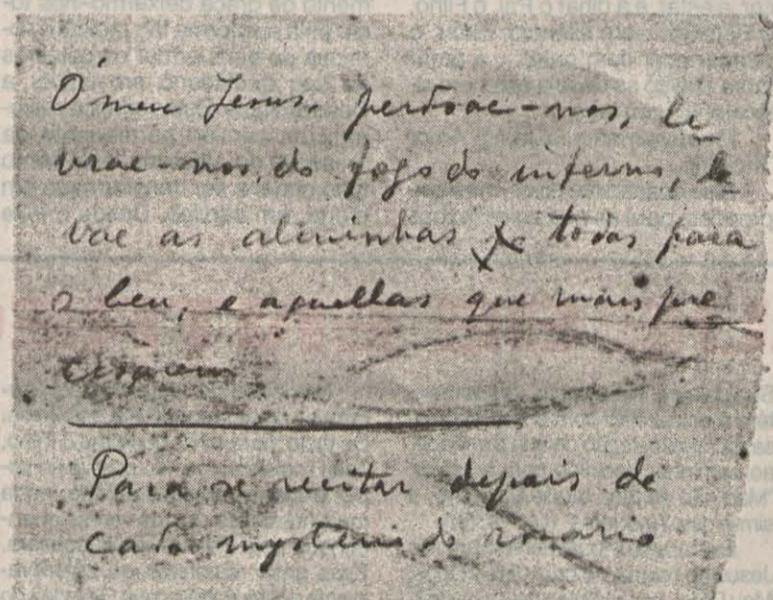 Ó meu Jesus, perdoae-nos, li_
vrae-nos, do fogo do inferno, le_
vae as alminhas todas para
o Ceu, e aquellas que mais pre_
cisarem
Para se recitar depois de
cada mysterio do rosario